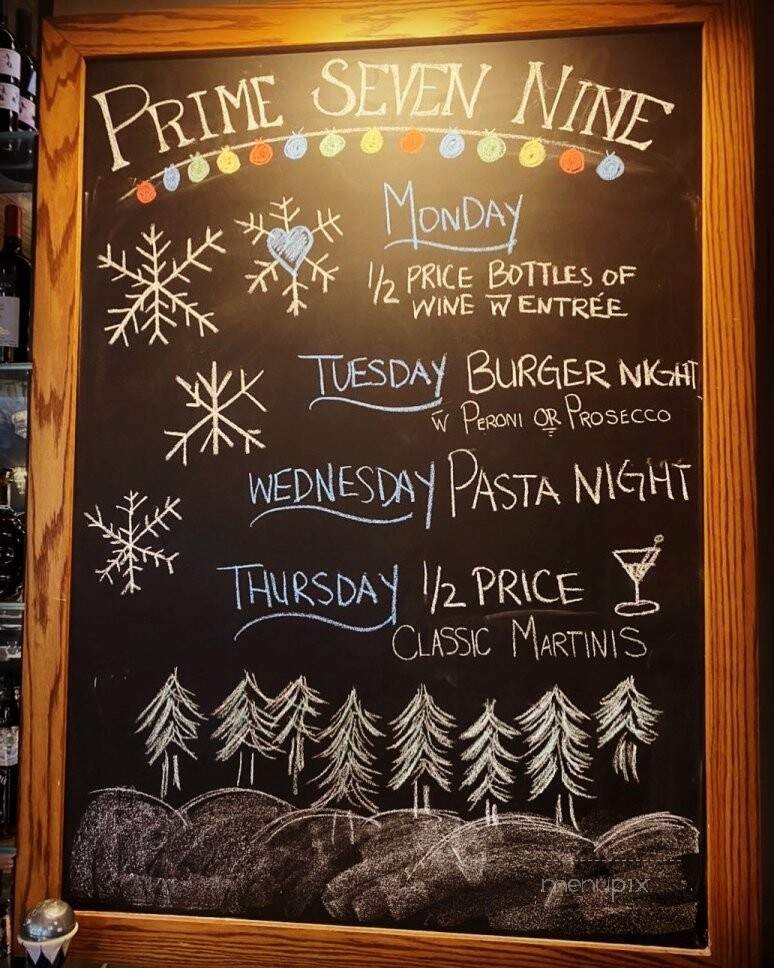 PRIME SEVEN NINE
MONDAY
1/2 PRICE BOTTLES OF
WINE W̅ ENTRÉE
TUESDAY BURGER NIGHT
W̅ PERONI OR PROSECCO
WEDNESDAY PASTA NIGHT
THURSDAY 1/2 PRICE
CLASSIC MARTINIS
menupix